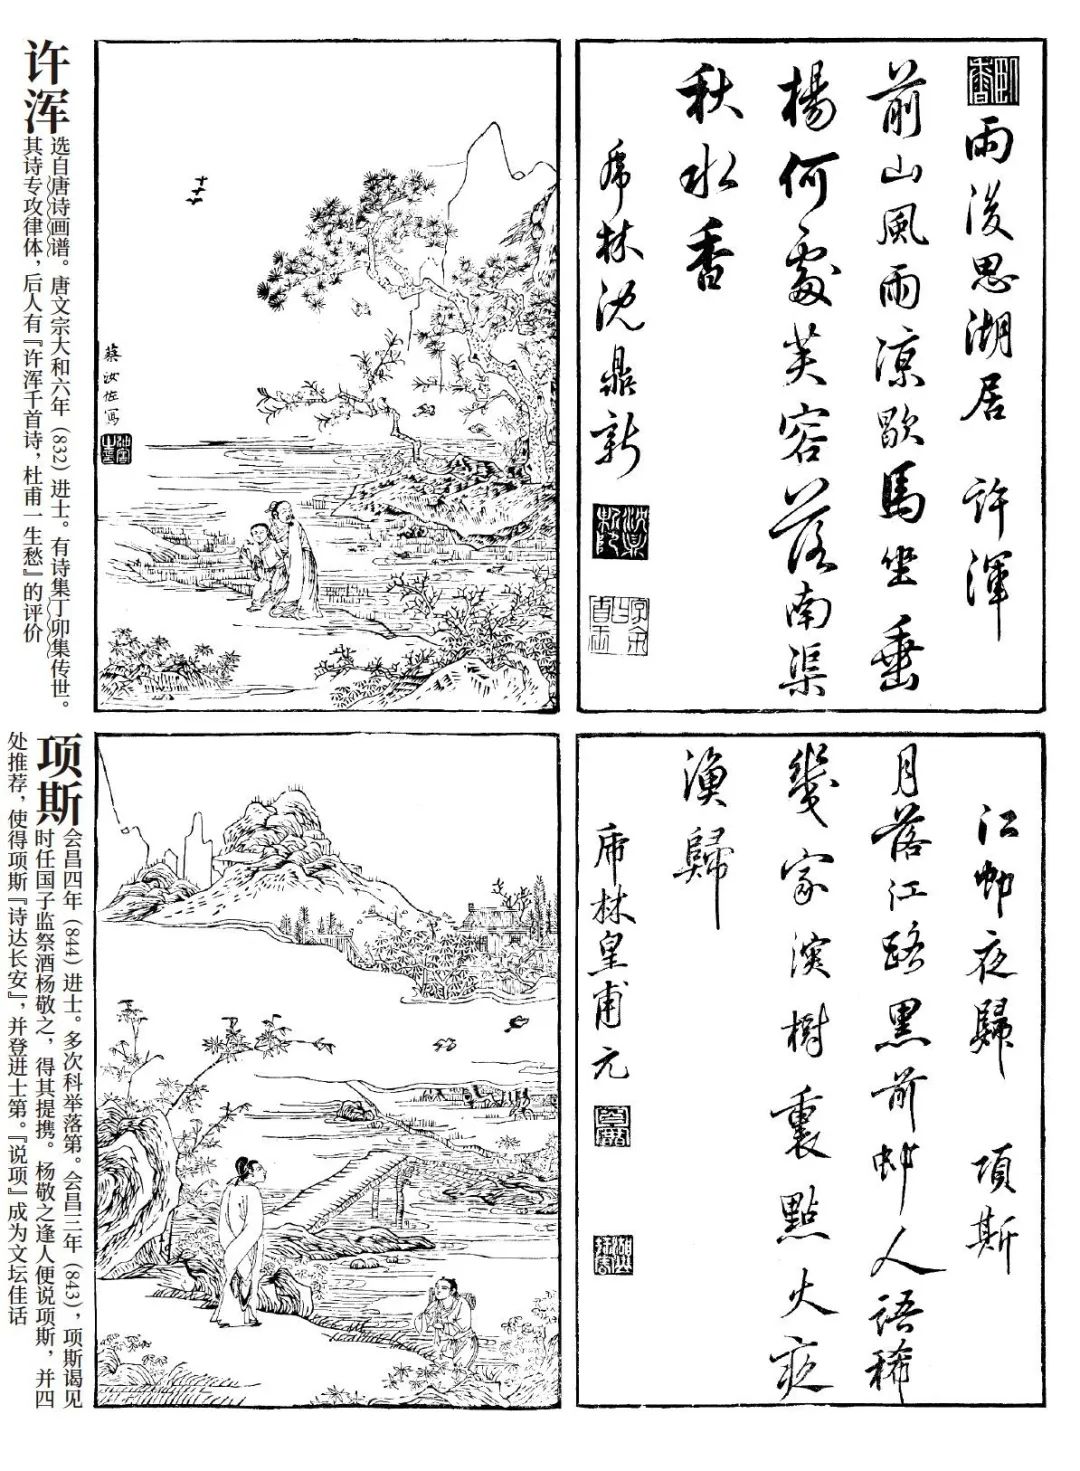 雨後思湖居 許渾
前山風雨涼歇馬坐垂
楊何處芙容落南渠
秋水香
虎林沈鼎新
蔡汝佐寫
许浑
选自唐诗画谱。唐文宗大和六年（832）进士。有诗集丁卯集传世。
其诗专攻律体，后人有『许浑千首诗，杜甫一生愁』的评价
江邨夜歸 項斯
月落江路黑前邨人語稀
幾家深樹裏點火夜
漁歸
虎林皇甫元
项斯
会昌四年（844）进士。多次科举落第。会昌三年（843），项斯谒见
时任国子监祭酒杨敬之，得其提携。杨敬之逢人便说项斯，并四
处推荐，使得项斯『诗达长安』，并登进士第。『说项』成为文坛佳话